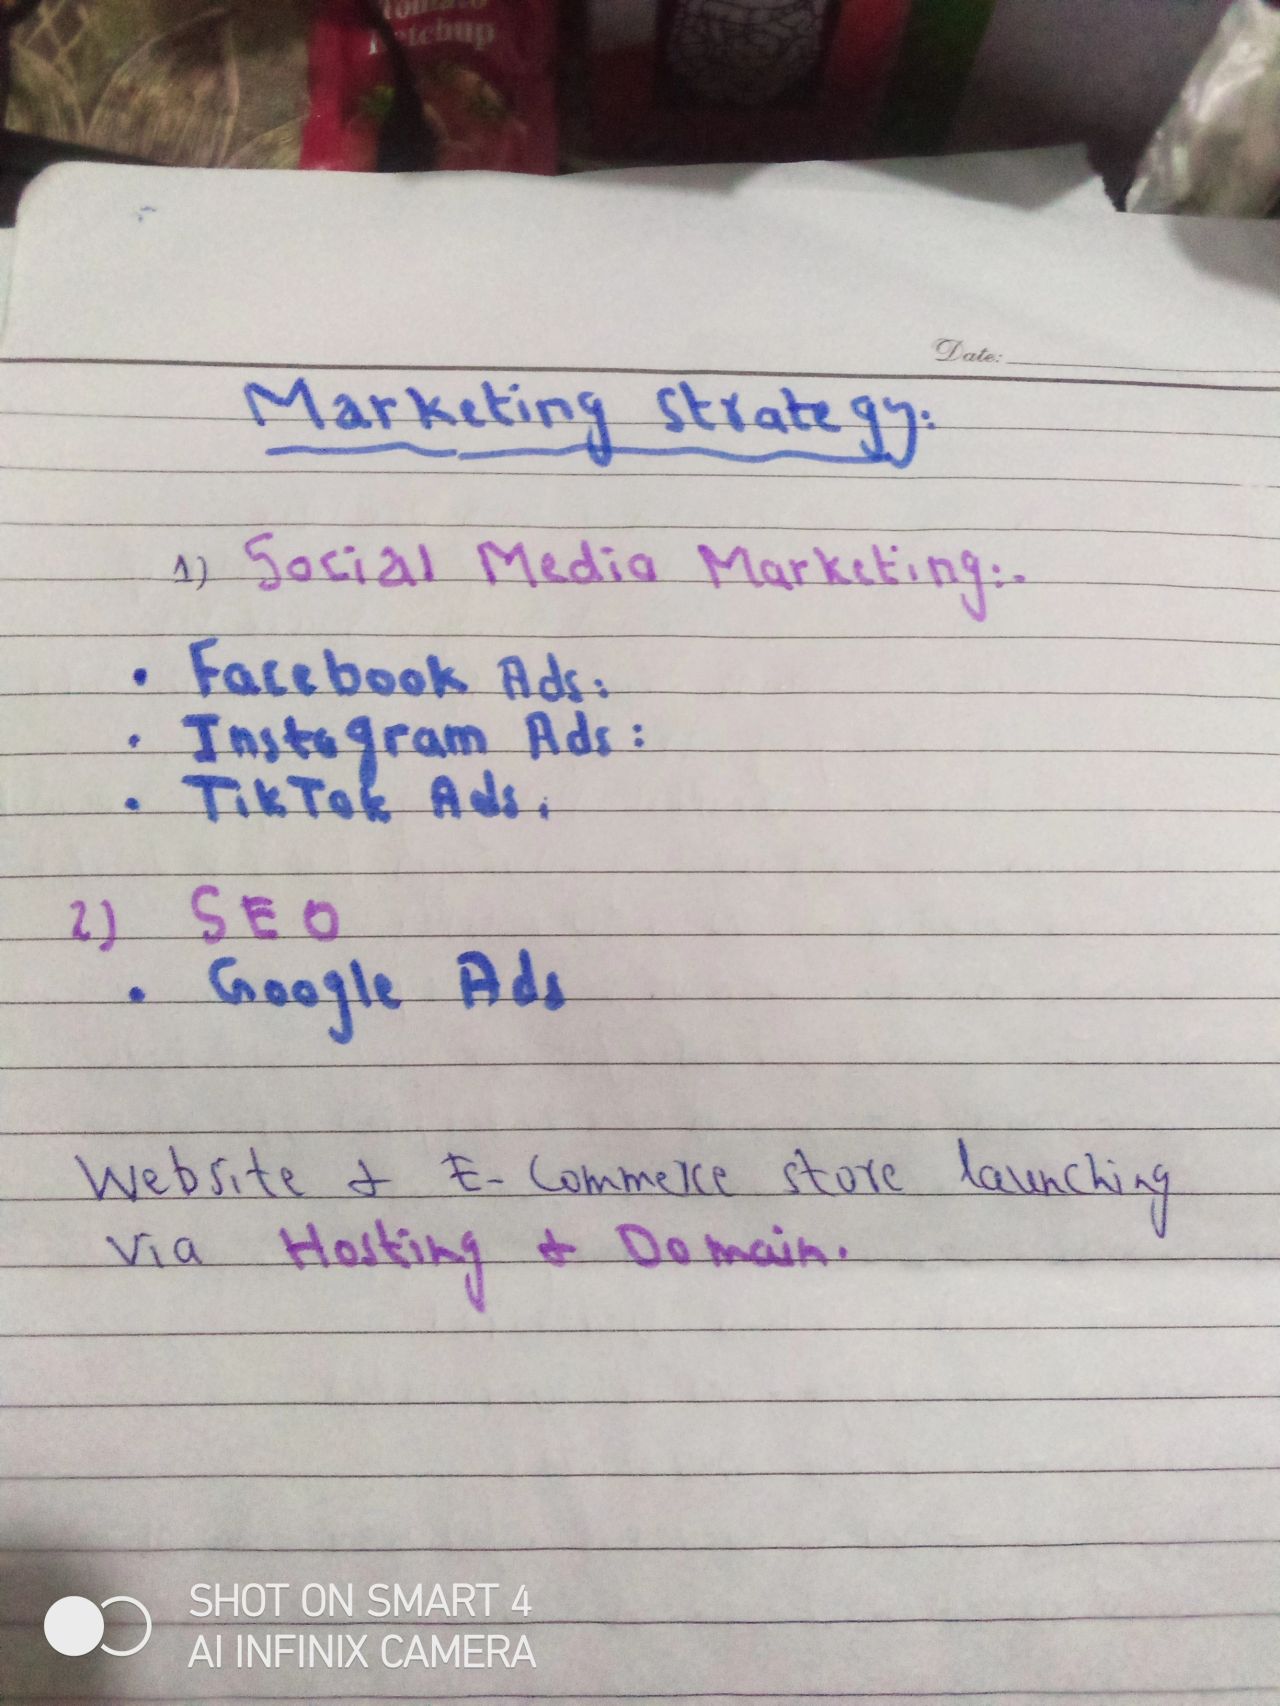 Tomato
Ketchup
Date:
Marketing Strategy:
1) Social Media Marketing:.
• Facebook Ads:
• Instagram Ads:
• TikTok Ads:
2) SEO
• Google Ads
Website & E-Commerce store launching
via Hosting & Domain.
SHOT ON SMART 4
AI INFINIX CAMERA